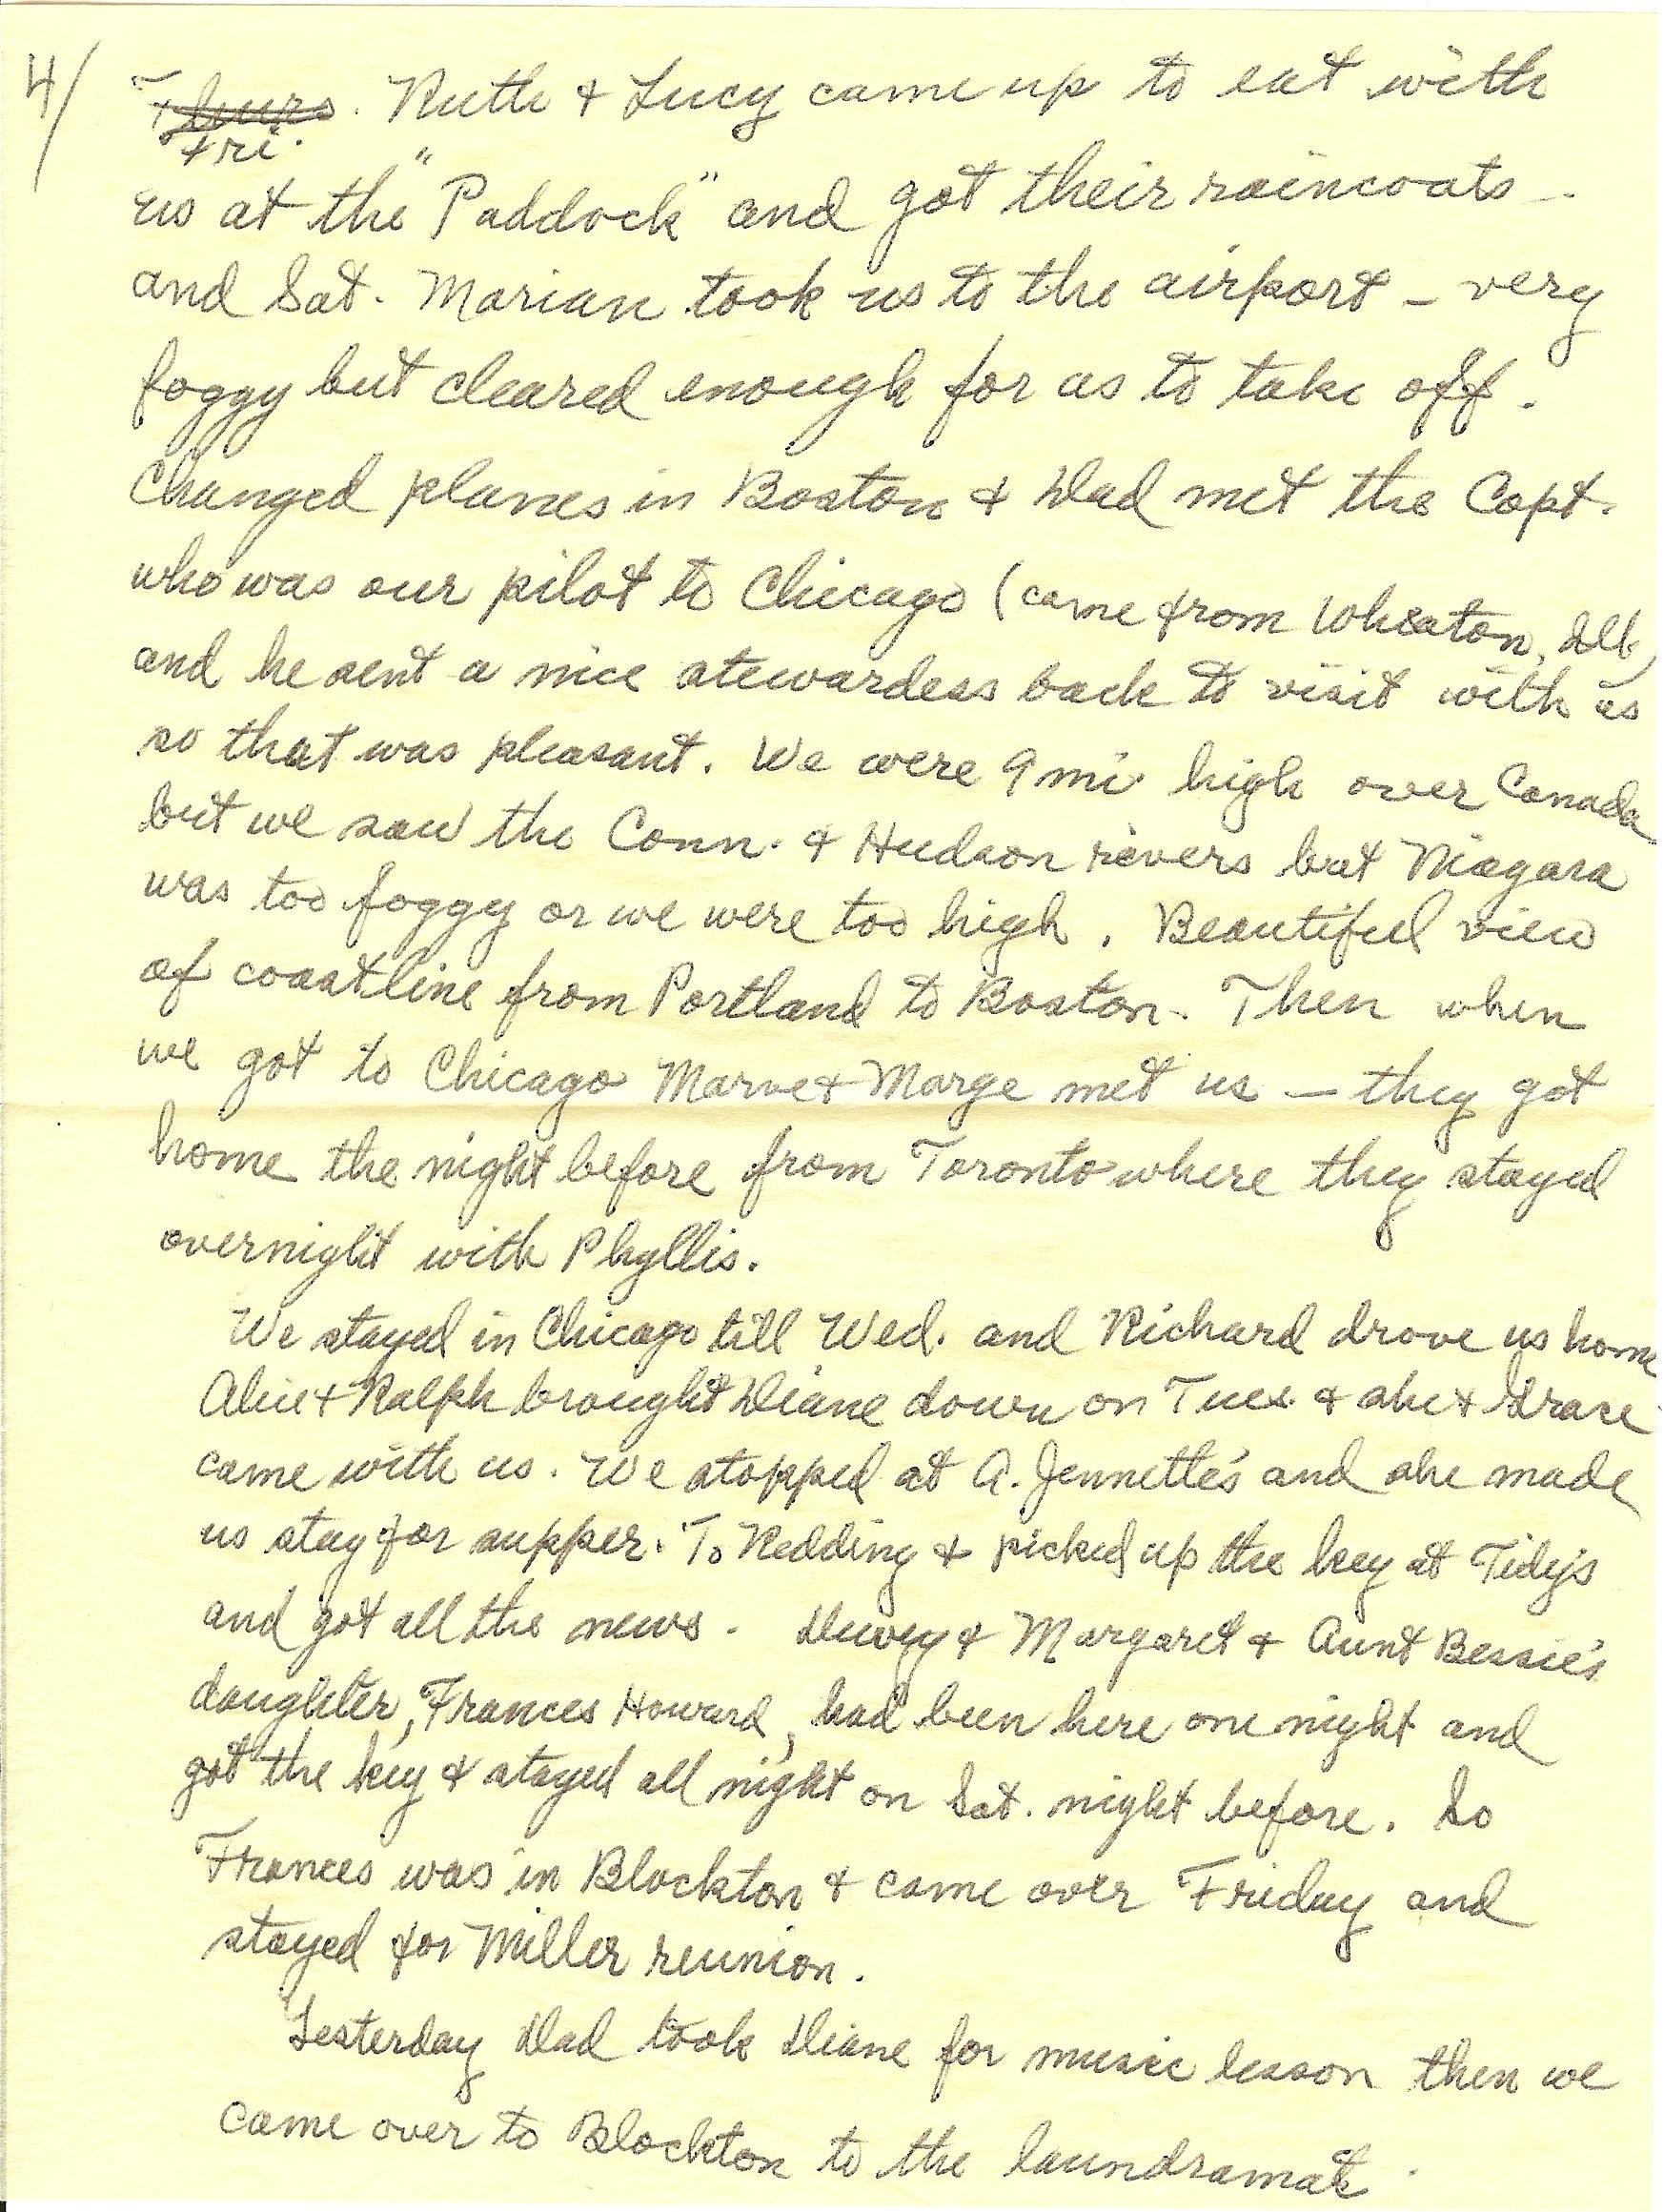 4/ Thurs. Ruth & Lucy came up to eat with
Fri.
us at the "Paddock" and got their raincoats -
and Sat. Marian took us to the airport - very
foggy but cleared enough for us to take off.
Changed planes in Boston & Dad met the Capt.
who was our pilot to Chicago (came from Wheaton, Ill)
and he sent a nice stewardess back to visit with us
so that was pleasant. We were 9 mi high over Canada
but we saw the Conn. & Hudson rivers but Niagara
was too foggy or we were too high. Beautiful view
of coastline from Portland to Boston. Then when
we got to Chicago Marv & Marge met us - they got
home the night before from Toronto where they stayed
overnight with Phyllis.
We stayed in Chicago till Wed. and Richard drove us home
Alice & Ralph brought Diane down on Tues. & she & Grace
came with us. We stopped at A. Jennette's and she made
us stay for supper. To Redding & picked up the key at Tidy's
and got all the news. Duvey & Margaret & Aunt Bessie's
daughter, Frances Howard, had been here one night and
got the key & stayed all night on Sat. night before. So
Frances was in Blockton & came over Friday and
stayed for Miller reunion.
Yesterday Dad took Diane for music lesson then we
came over to Blockton to the laundramat.